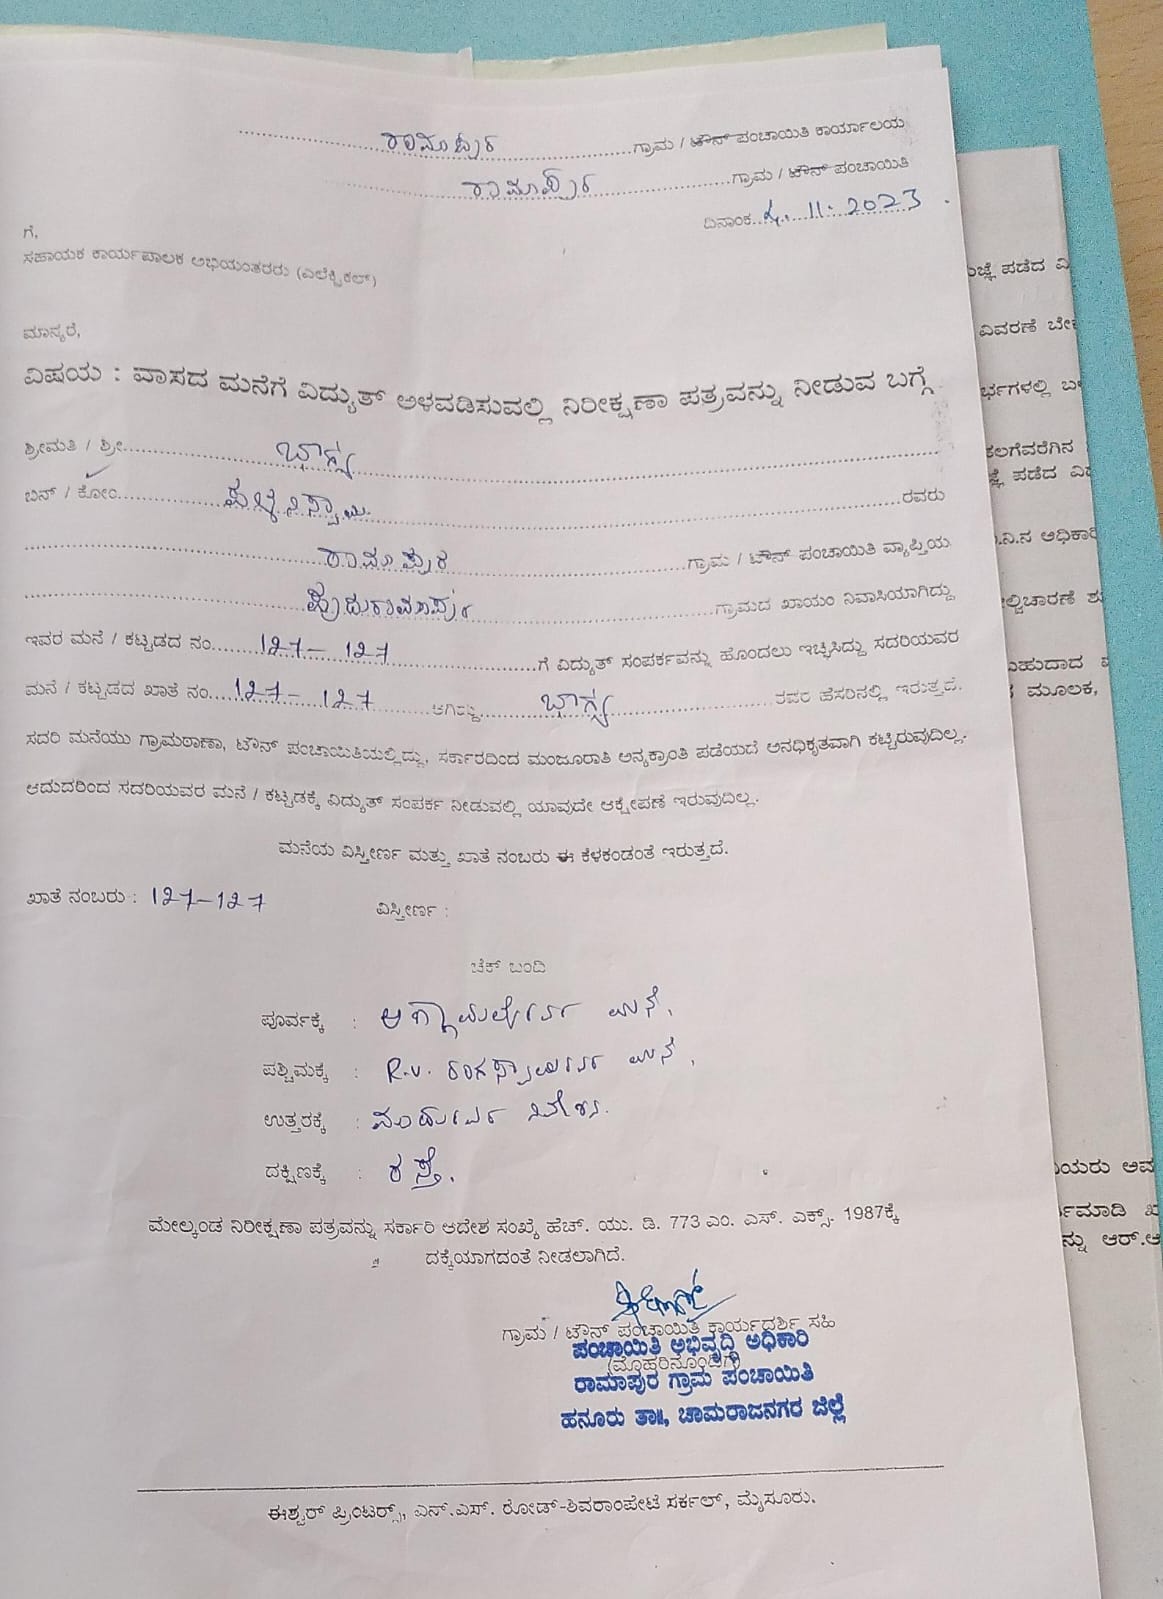 ರಾಮಾಪುರ ಗ್ರಾಮ / ಟೌನ್ ಪಂಚಾಯಿತಿ ಕಾರ್ಯಾಲಯ
ರಾಮಾಪುರ ಗ್ರಾಮ / ಟೌನ್ ಪಂಚಾಯಿತಿ
ದಿನಾಂಕ 4.11.2023
ಗೆ,
ಸಹಾಯಕ ಕಾರ್ಯಪಾಲಕ ಅಭಿಯಂತರರು (ಎಲೆಕ್ಟ್ರಿಕಲ್)
ಮಾನ್ಯರೆ,
ವಿಷಯ : ವಾಸದ ಮನೆಗೆ ವಿದ್ಯುತ್ ಅಳವಡಿಸುವಲ್ಲಿ ನಿರೀಕ್ಷಣಾ ಪತ್ರವನ್ನು ನೀಡುವ ಬಗ್ಗೆ
ಶ್ರೀಮತಿ / ಶ್ರೀ ಭಾಗ್ಯ
ಬಿನ್ / ಕೋಂ ಪುಟ್ಟನಿಸ್ವಾಮಿ ರವರು
ರಾಮಾಪುರ ಗ್ರಾಮ / ಟೌನ್ ಪಂಚಾಯಿತಿ ವ್ಯಾಪ್ತಿಯ
ಪುದುರಾಮಾಪುರ ಗ್ರಾಮದ ಖಾಯಂ ನಿವಾಸಿಯಾಗಿದ್ದು
ಇವರ ಮನೆ / ಕಟ್ಟಡದ ನಂ 127-127 ಗೆ ವಿದ್ಯುತ್ ಸಂಪರ್ಕವನ್ನು ಹೊಂದಲು ಇಚ್ಛಿಸಿದ್ದು ಸದರಿಯವರ
ಮನೆ / ಕಟ್ಟಡದ ಖಾತೆ ನಂ 127-127 ಆಗಿದ್ದು ಭಾಗ್ಯ ರವರ ಹೆಸರಿನಲ್ಲಿ ಇರುತ್ತದೆ.
ಸದರಿ ಮನೆಯು ಗ್ರಾಮಠಾಣಾ, ಟೌನ್ ಪಂಚಾಯಿತಿಯಲ್ಲಿದ್ದು, ಸರ್ಕಾರದಿಂದ ಮಂಜೂರಾತಿ ಅನ್ಯಕ್ರಾಂತಿ ಪಡೆಯದೆ ಅನಧಿಕೃತವಾಗಿ ಕಟ್ಟಿರುವುದಿಲ್ಲ.
ಆದುದರಿಂದ ಸದರಿಯವರ ಮನೆ / ಕಟ್ಟಡಕ್ಕೆ ವಿದ್ಯುತ್ ಸಂಪರ್ಕ ನೀಡುವಲ್ಲಿ ಯಾವುದೇ ಆಕ್ಷೇಪಣೆ ಇರುವುದಿಲ್ಲ.
ಮನೆಯ ವಿಸ್ತೀರ್ಣ ಮತ್ತು ಖಾತೆ ನಂಬರು ಈ ಕೆಳಕಂಡಂತೆ ಇರುತ್ತದೆ.
ಖಾತೆ ನಂಬರು : 127-127 ವಿಸ್ತೀರ್ಣ :
ಚೆಕ್ ಬಂದಿ
ಪೂರ್ವಕ್ಕೆ : ಮನೆ,
ಪಶ್ಚಿಮಕ್ಕೆ : R.V. ರಂಗಸ್ವಾಮಿರವರ ಮನೆ,
ಉತ್ತರಕ್ಕೆ :
ದಕ್ಷಿಣಕ್ಕೆ : ರಸ್ತೆ.
ಮೇಲ್ಕಂಡ ನಿರೀಕ್ಷಣಾ ಪತ್ರವನ್ನು ಸರ್ಕಾರಿ ಆದೇಶ ಸಂಖ್ಯೆ ಹೆಚ್. ಯು. ಡಿ. 773 ಎಂ. ಎಸ್. ಎಕ್ಸ್. 1987ಕ್ಕೆ
ದಕ್ಕೆಯಾಗದಂತೆ ನೀಡಲಾಗಿದೆ.
ಗ್ರಾಮ / ಟೌನ್ ಪಂಚಾಯಿತಿ ಕಾರ್ಯದರ್ಶಿ ಸಹಿ
ಪಂಚಾಯಿತಿ ಅಭಿವೃದ್ಧಿ ಅಧಿಕಾರಿ
(ಮೊಹರಿನೊಂದಿಗೆ)
ರಾಮಾಪುರ ಗ್ರಾಮ ಪಂಚಾಯಿತಿ
ಹನೂರು ತಾ॥, ಚಾಮರಾಜನಗರ ಜಿಲ್ಲೆ
ಈಶ್ವರ್ ಪ್ರಿಂಟರ್ಸ್, ಎನ್.ಎಸ್. ರೋಡ್-ಶಿವರಾಂಪೇಟೆ ಸರ್ಕಲ್, ಮೈಸೂರು.